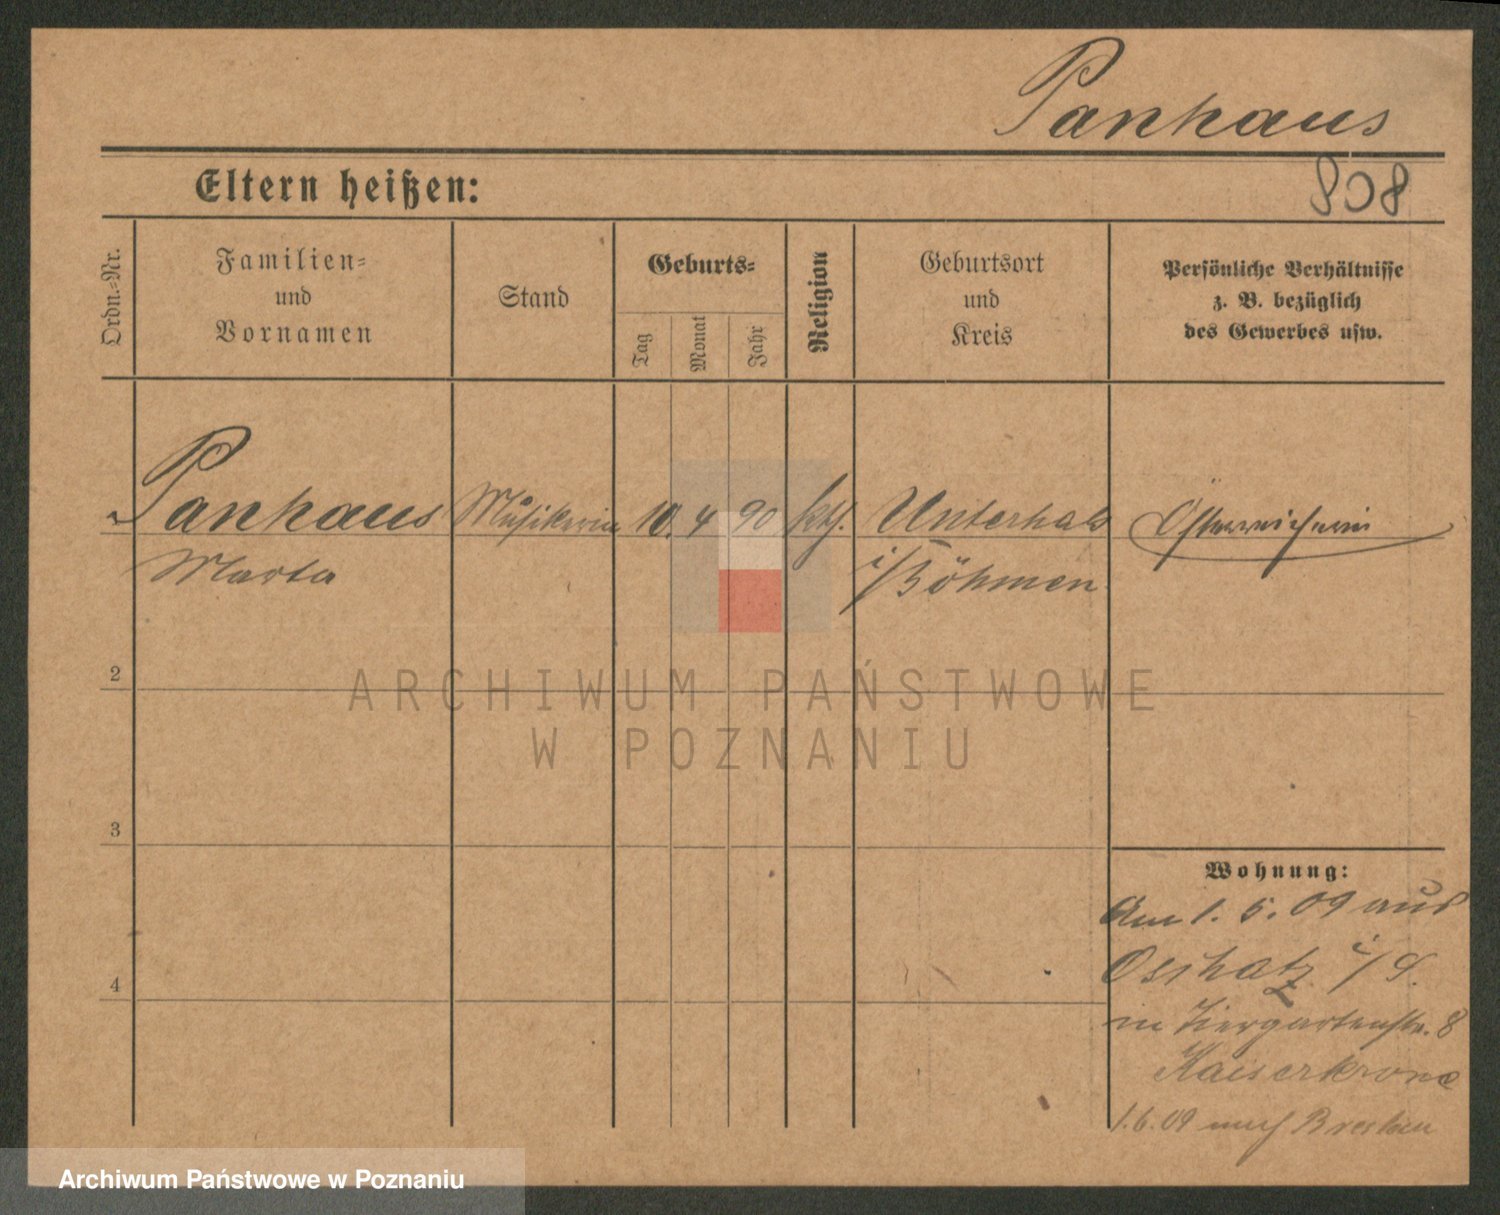 Panhaus
Eltern heißen:
808
Ordn.-Nr.
Familien-
und
Vornamen
Stand
Geburts-
Tag
Monat
Jahr
Religion
Geburtsort
und
Kreis
Persönliche Verhältnisse
z. B. bezüglich
des Gewerbes usw.
Panhaus Musikerin 10. 4 90 kth. Unterhals Österreicherin
Marta i/Böhmen
2
ARCHIWUM PAŃSTWOWE
W POZNANIU
3
Wohnung:
Am 1. 5. 09 aus
Oschatz i/S.
4
in Tiergartenstr. 8
Kaiserkrone
1.6.09 nach Breslau
Archiwum Państwowe w Poznaniu